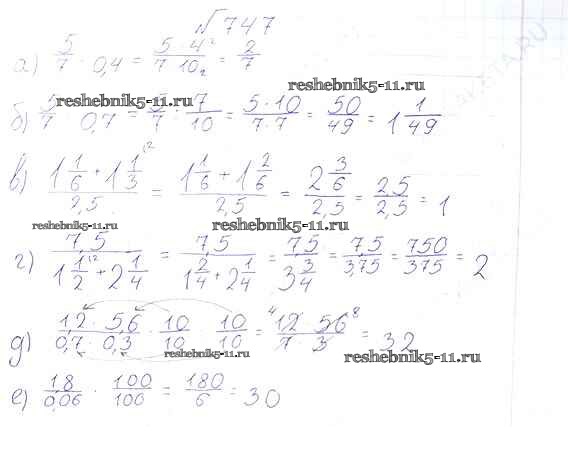 √747
а) 5/7 · 0,4 = 5 · 4²/7 · 10₂ = 2/7
б) 5/7 : 0,7 = 5/7 : 7/10 = 5 · 10/7 · 7 = 50/49 = 1 1/49
reshebnik5-11.ru
reshebnik5-11.ru
в) 1 1/6 + 1 1/3^(2/2,5 = 1 1/6 + 1 2/6/2,5 = 2 3/6/2,5 = 2,5/2,5 = 1
reshebnik5-11.ru
reshebnik5-11.ru
г) 7,5/1 1/2^(2 + 2 1/4 = 7,5/1 2/4 + 2 1/4 = 7,5/3 3/4 = 7,5/3,75 = 750/375 = 2
д) 1,2 · 5,6/0,7 · 0,3 · 10/10 · 10/10 = ⁴12 · 56⁸/7 · 3 = 32
reshebnik5-11.ru
reshebnik5-11.ru
е) 1,8/0,06 · 100/100 = 180/6 = 30